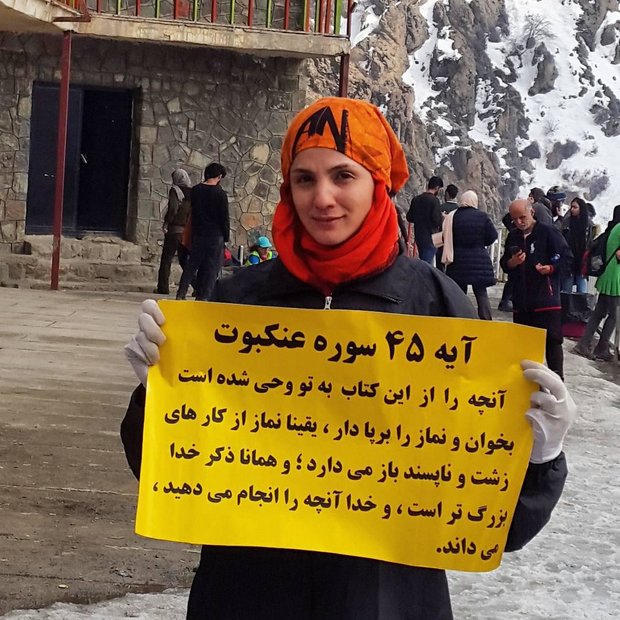 AN
آیه ۴۵ سوره عنکبوت
آنچه را از این کتاب به تو وحی شده است
بخوان و نماز را برپا دار ، یقینا نماز از کار های
زشت و ناپسند باز می دارد ؛ و همانا ذکر خدا
بزرگ تر است ، و خدا آنچه را انجام می دهید ،
می داند.